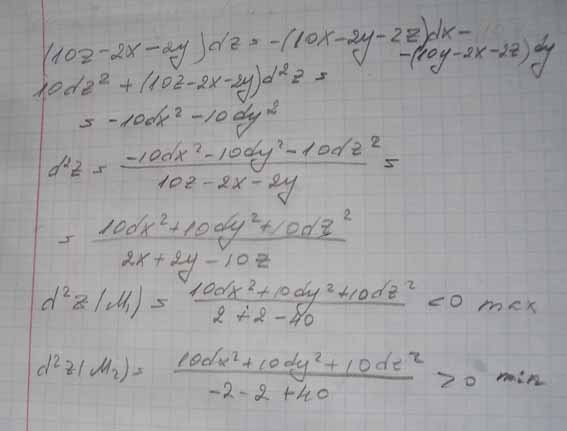 (10z-2x-2y)dz = -(10x-2y-2z)dx-
-(10y-2x-2z)dy
10dz² + (10z-2x-2y)d²z =
= -10dx² - 10dy²
d²z = (-10dx²-10dy²-10dz²)/(10z-2x-2y) =
= (10dx²+10dy²+10dz²)/(2x+2y-10z)
d²z(M₁) = (10dx²+10dy²+10dz²)/(2+2-40) <0 max
d²z(M₂) = (10dx²+10dy²+10dz²)/(-2-2+40) >0 min